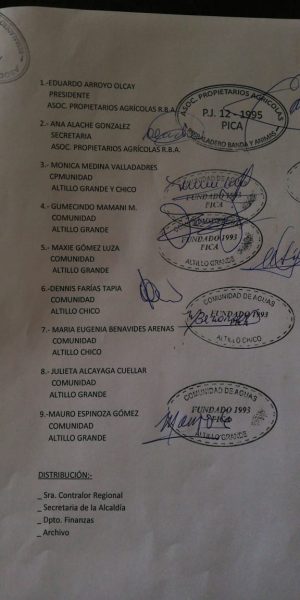 1.-EDUARDO ARROYO OLCAY
PRESIDENTE
ASOC. PROPIETARIOS AGRÍCOLAS R.B.A.
ASOC. PROPIETARIOS AGRICOLAS
P.J. 12 - 1995
PICA
BANDA Y ANIMAS
2.- ANA ALACHE GONZALEZ
SECRETARIA
ASOC. PROPIETARIOS AGRÍCOLAS R.B.A.
3.- MONICA MEDINA VALLADADRES
CPMUNIDAD
ALTILLO GRANDE Y CHICO
COMUNIDAD DE AGUAS
FUNDADO 1993
4.- GUMECINDO MAMANI M.
COMUNIDAD
ALTILLO GRANDE
FUNDADO 1993
PICA
ALTILLO GRANDE
5.- MAXIE GÓMEZ LUZA
COMUNIDAD
ALTILLO GRANDE
6.-DENNIS FARÍAS TAPIA
COMUNIDAD
ALTILLO CHICO
COMUNIDAD DE AGUAS
FUNDADO 1993
PICA
ALTILLO CHICO
7.- MARIA EUGENIA BENAVIDES ARENAS
COMUNIDAD
ALTILLO CHICO
8.- JULIETA ALCAYAGA CUELLAR
COMUNIDAD
ALTILLO GRANDE
COMUNIDAD DE AGUAS
FUNDADO 1993
PICA
ALTILLO GRANDE
9.-MAURO ESPINOZA GÓMEZ
COMUNIDAD
ALTILLO GRANDE
DISTRIBUCIÓN:-
_ Sra. Contralor Regional
_ Secretaria de la Alcaldía
_ Dpto. Finanzas
_ Archivo